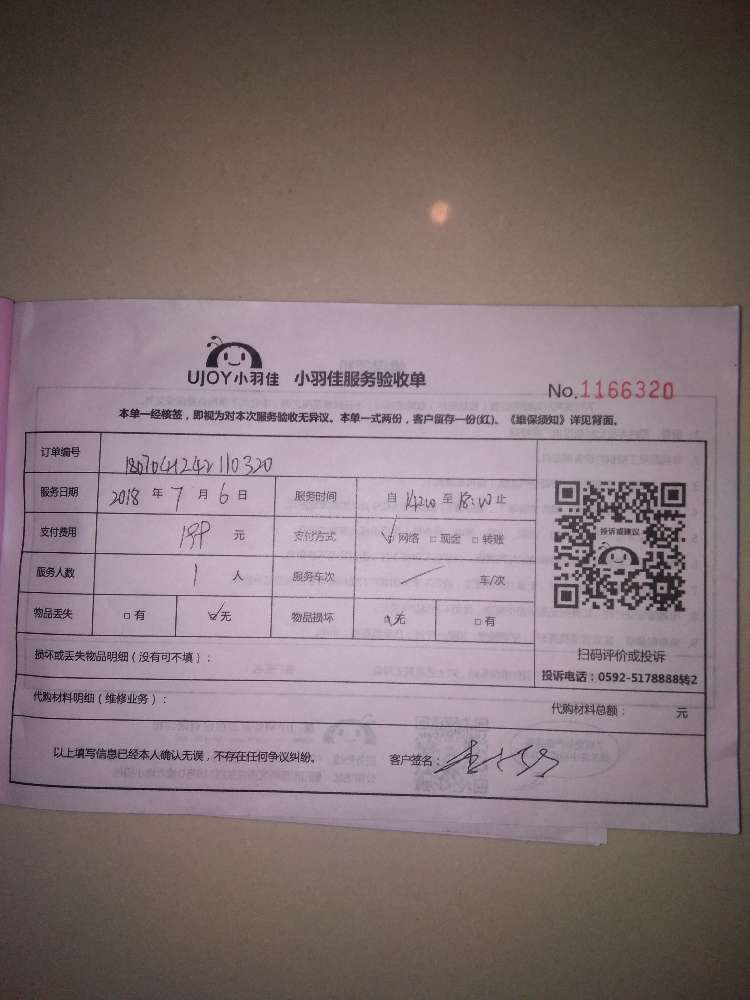 UJOY小羽佳 小羽佳服务验收单
No.1166320
本单一经核签，即视为对本次服务验收无异议。本单一式两份，客户留存一份(红)。《维保须知》详见背面。
订单编号
服务日期 2018 年 7 月 6 日 服务时间 自 至 18:00 止
支付费用 元 支付方式 □网络 □现金 □转账
服务人数 1 人 服务车次 车/次
物品丢失 □有 □无 物品损坏 □无 □有
投诉或建议
扫码评价或投诉
投诉电话：0592-5178888转2
损坏或丢失物品明细（没有可不填）：
代购材料明细（维修业务）： 代购材料总额： 元
以上填写信息已经本人确认无误，不存在任何争议纠纷。 客户签名：